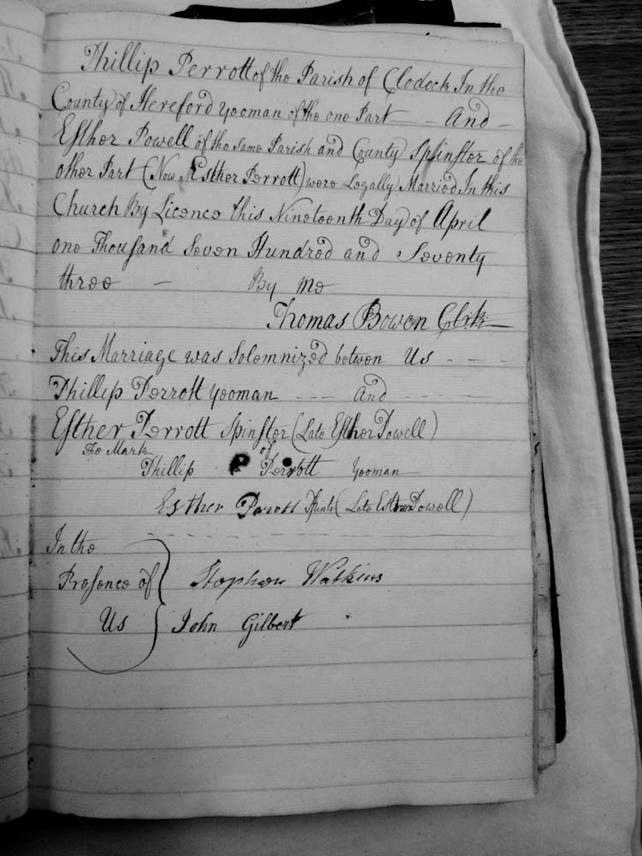 Phillip Perrott of the Parish of Clodock In the
County of Hereford yeoman of the one Part - And
Esther Powell of the same Parish and County Spinster of the
other Part (Now Esther Perrott) were Legally Married In this
Church By Licence this Nineteenth Day of April
one Thousand Seven Hundred and Seventy
three - By me
Thomas Bowen Clerk
This Marriage was Solemnized between Us - -
Phillip Perrott yeoman - - - And - - -
Esther Perrott Spinster (Late Esther Powell)
The Mark of
Phillip P Perrott yeoman
Esther Parott (Late Esther Powell)
In the
Presence of Stephen Watkins
Us John Gilbert